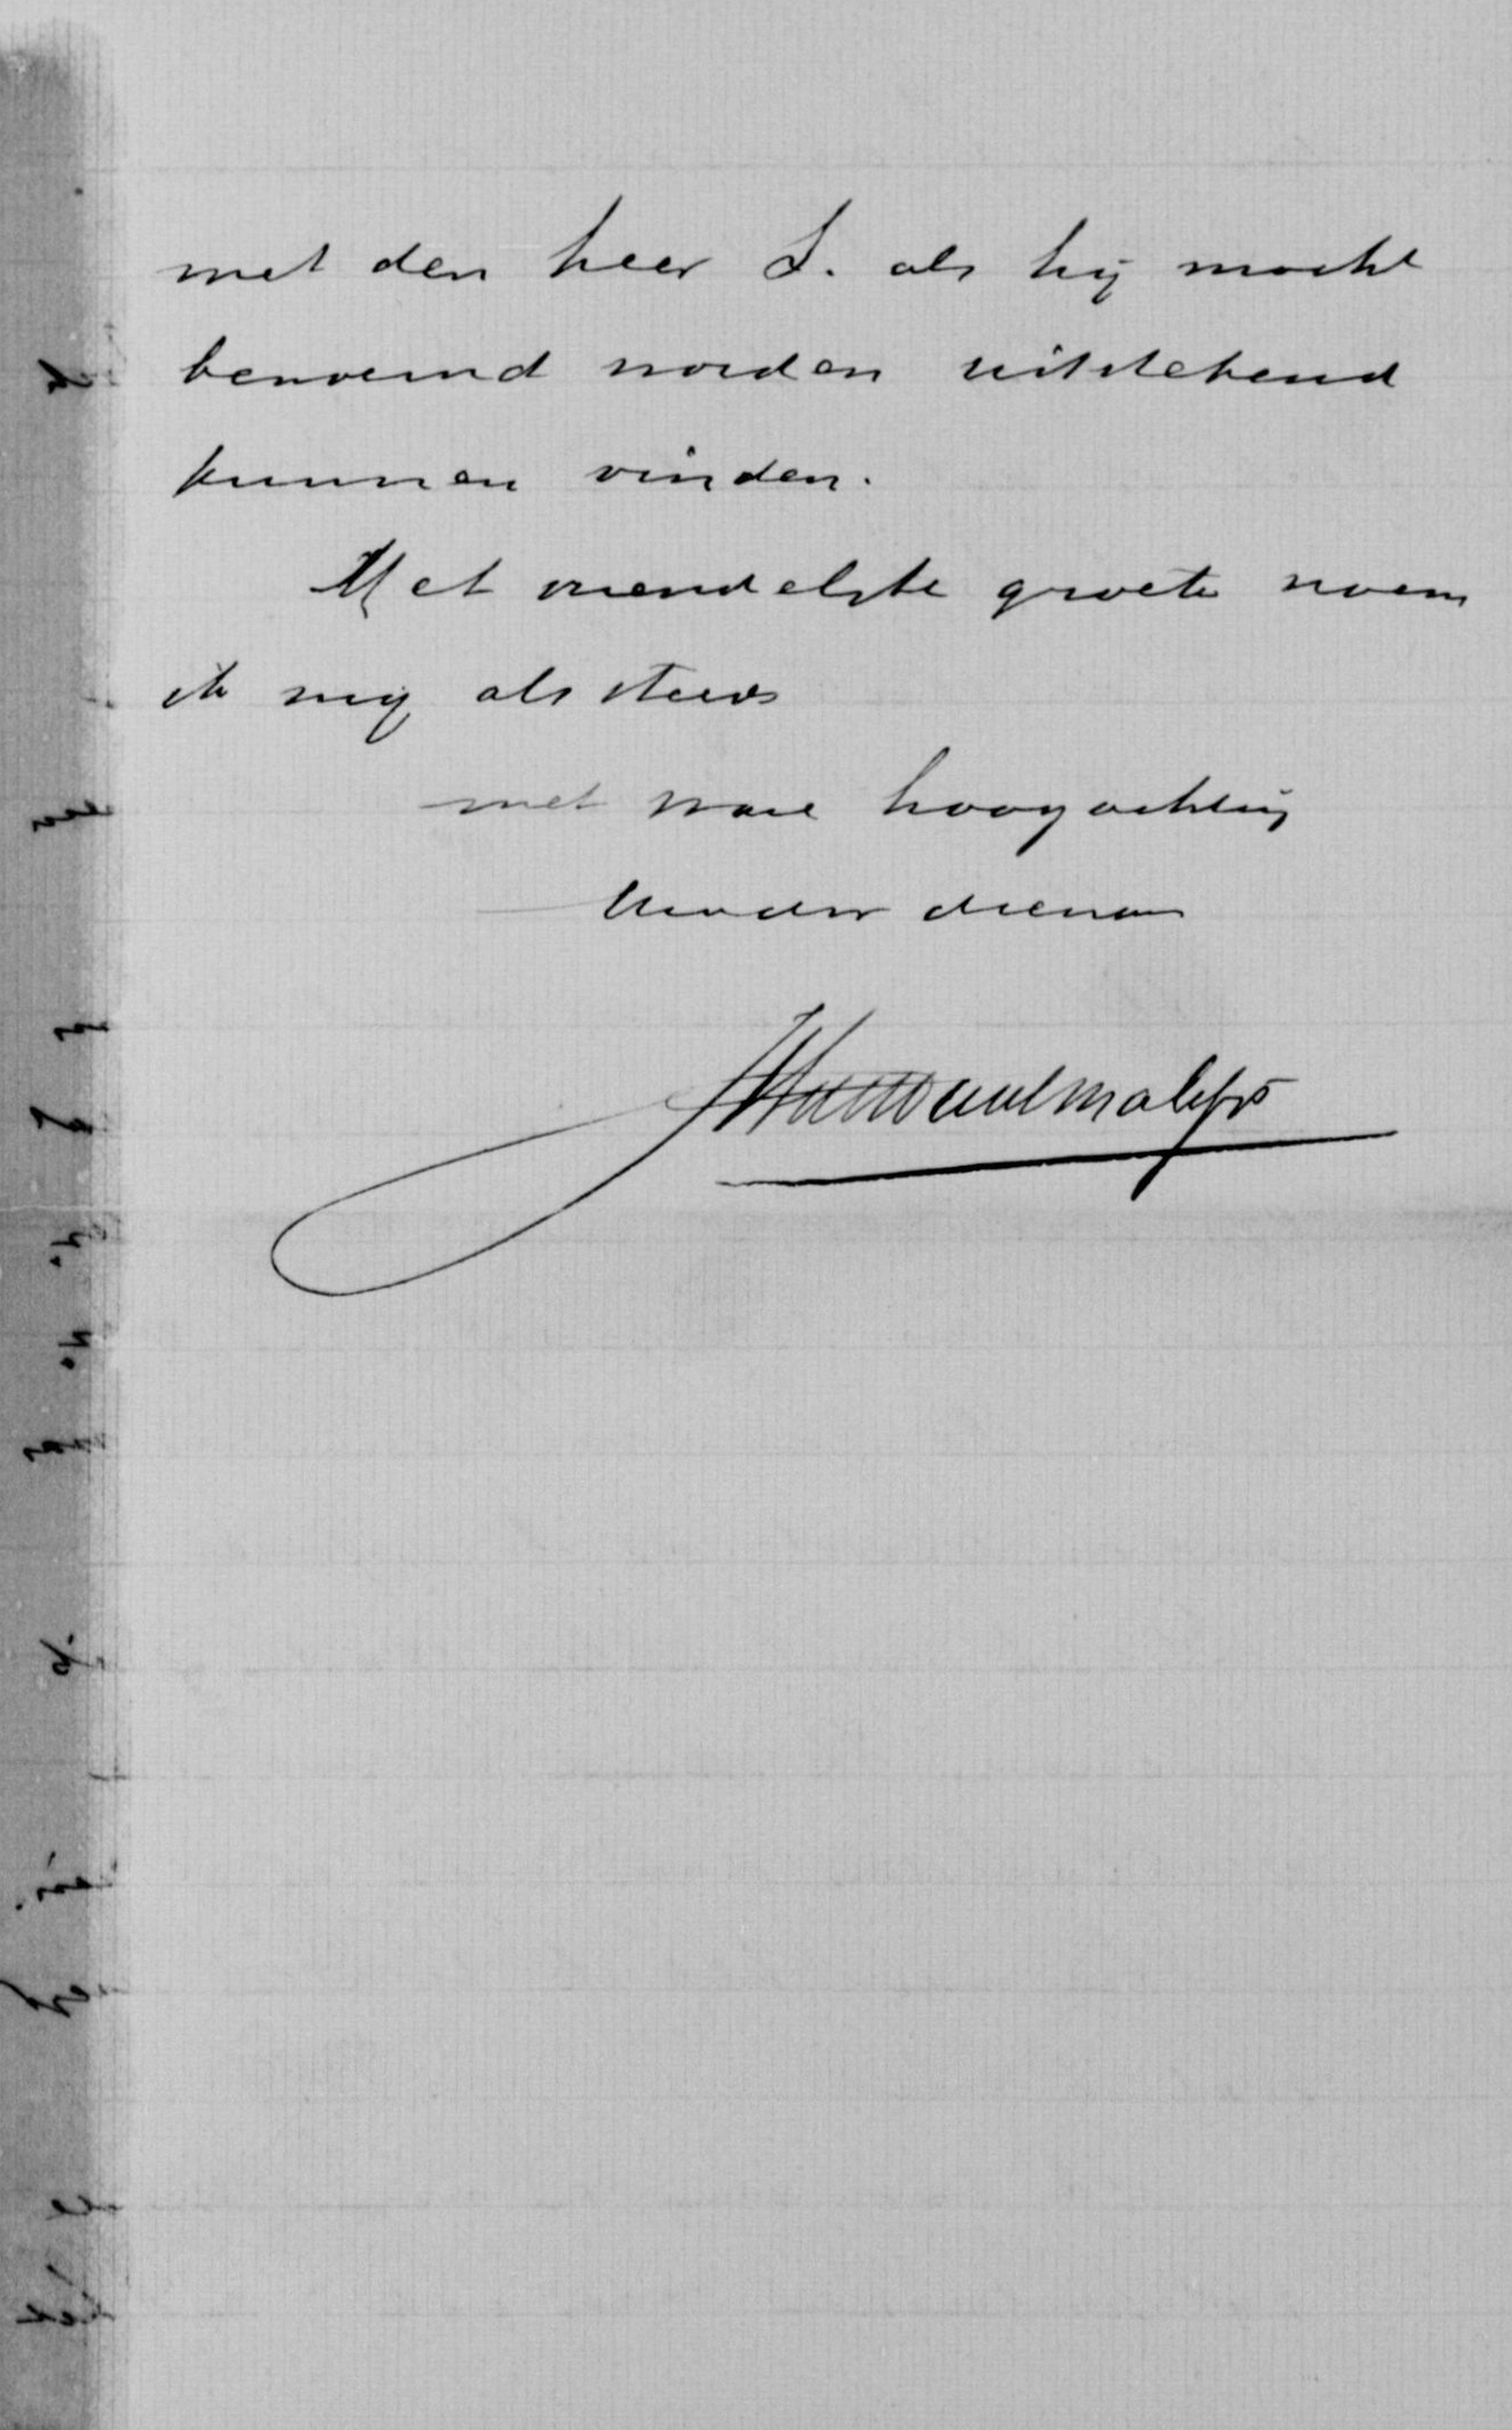 met den heer S. als hij mocht
benoemd worden uitstekend
kunnen vinden.
Met vriendelijke groete noem
ik mij als steeds
met ware hoogachting
dienaar